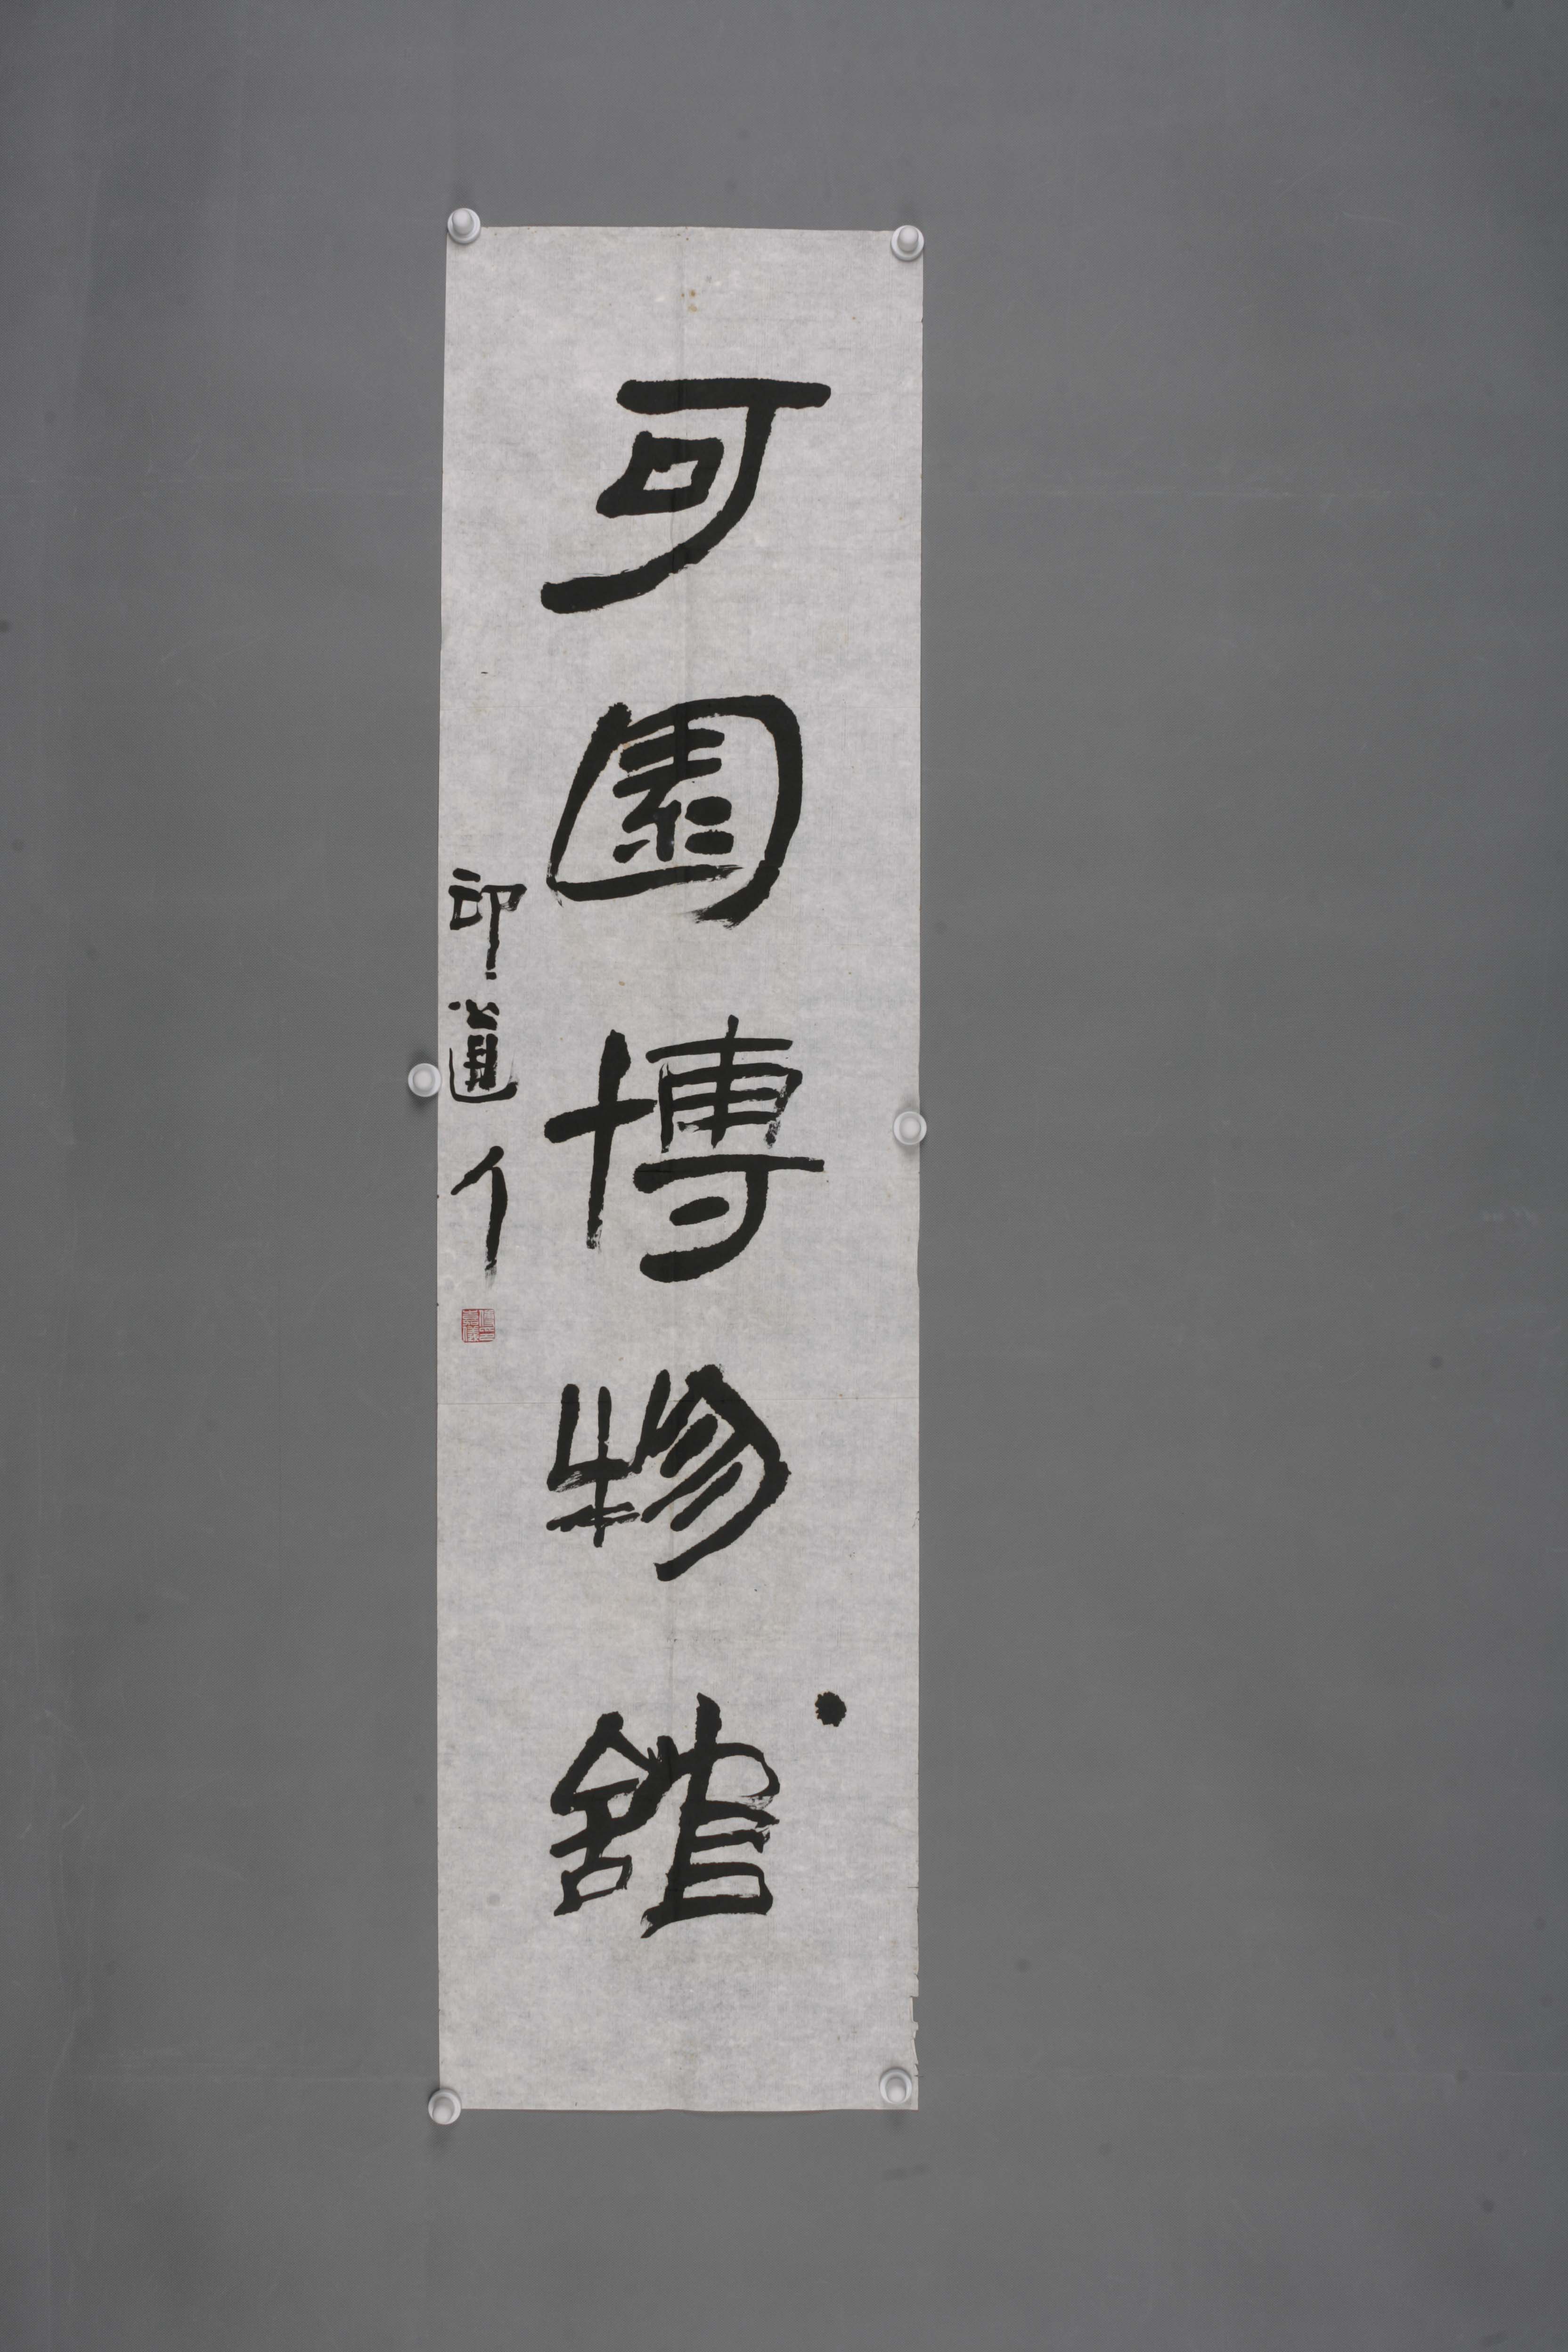 可園博物館
印道人